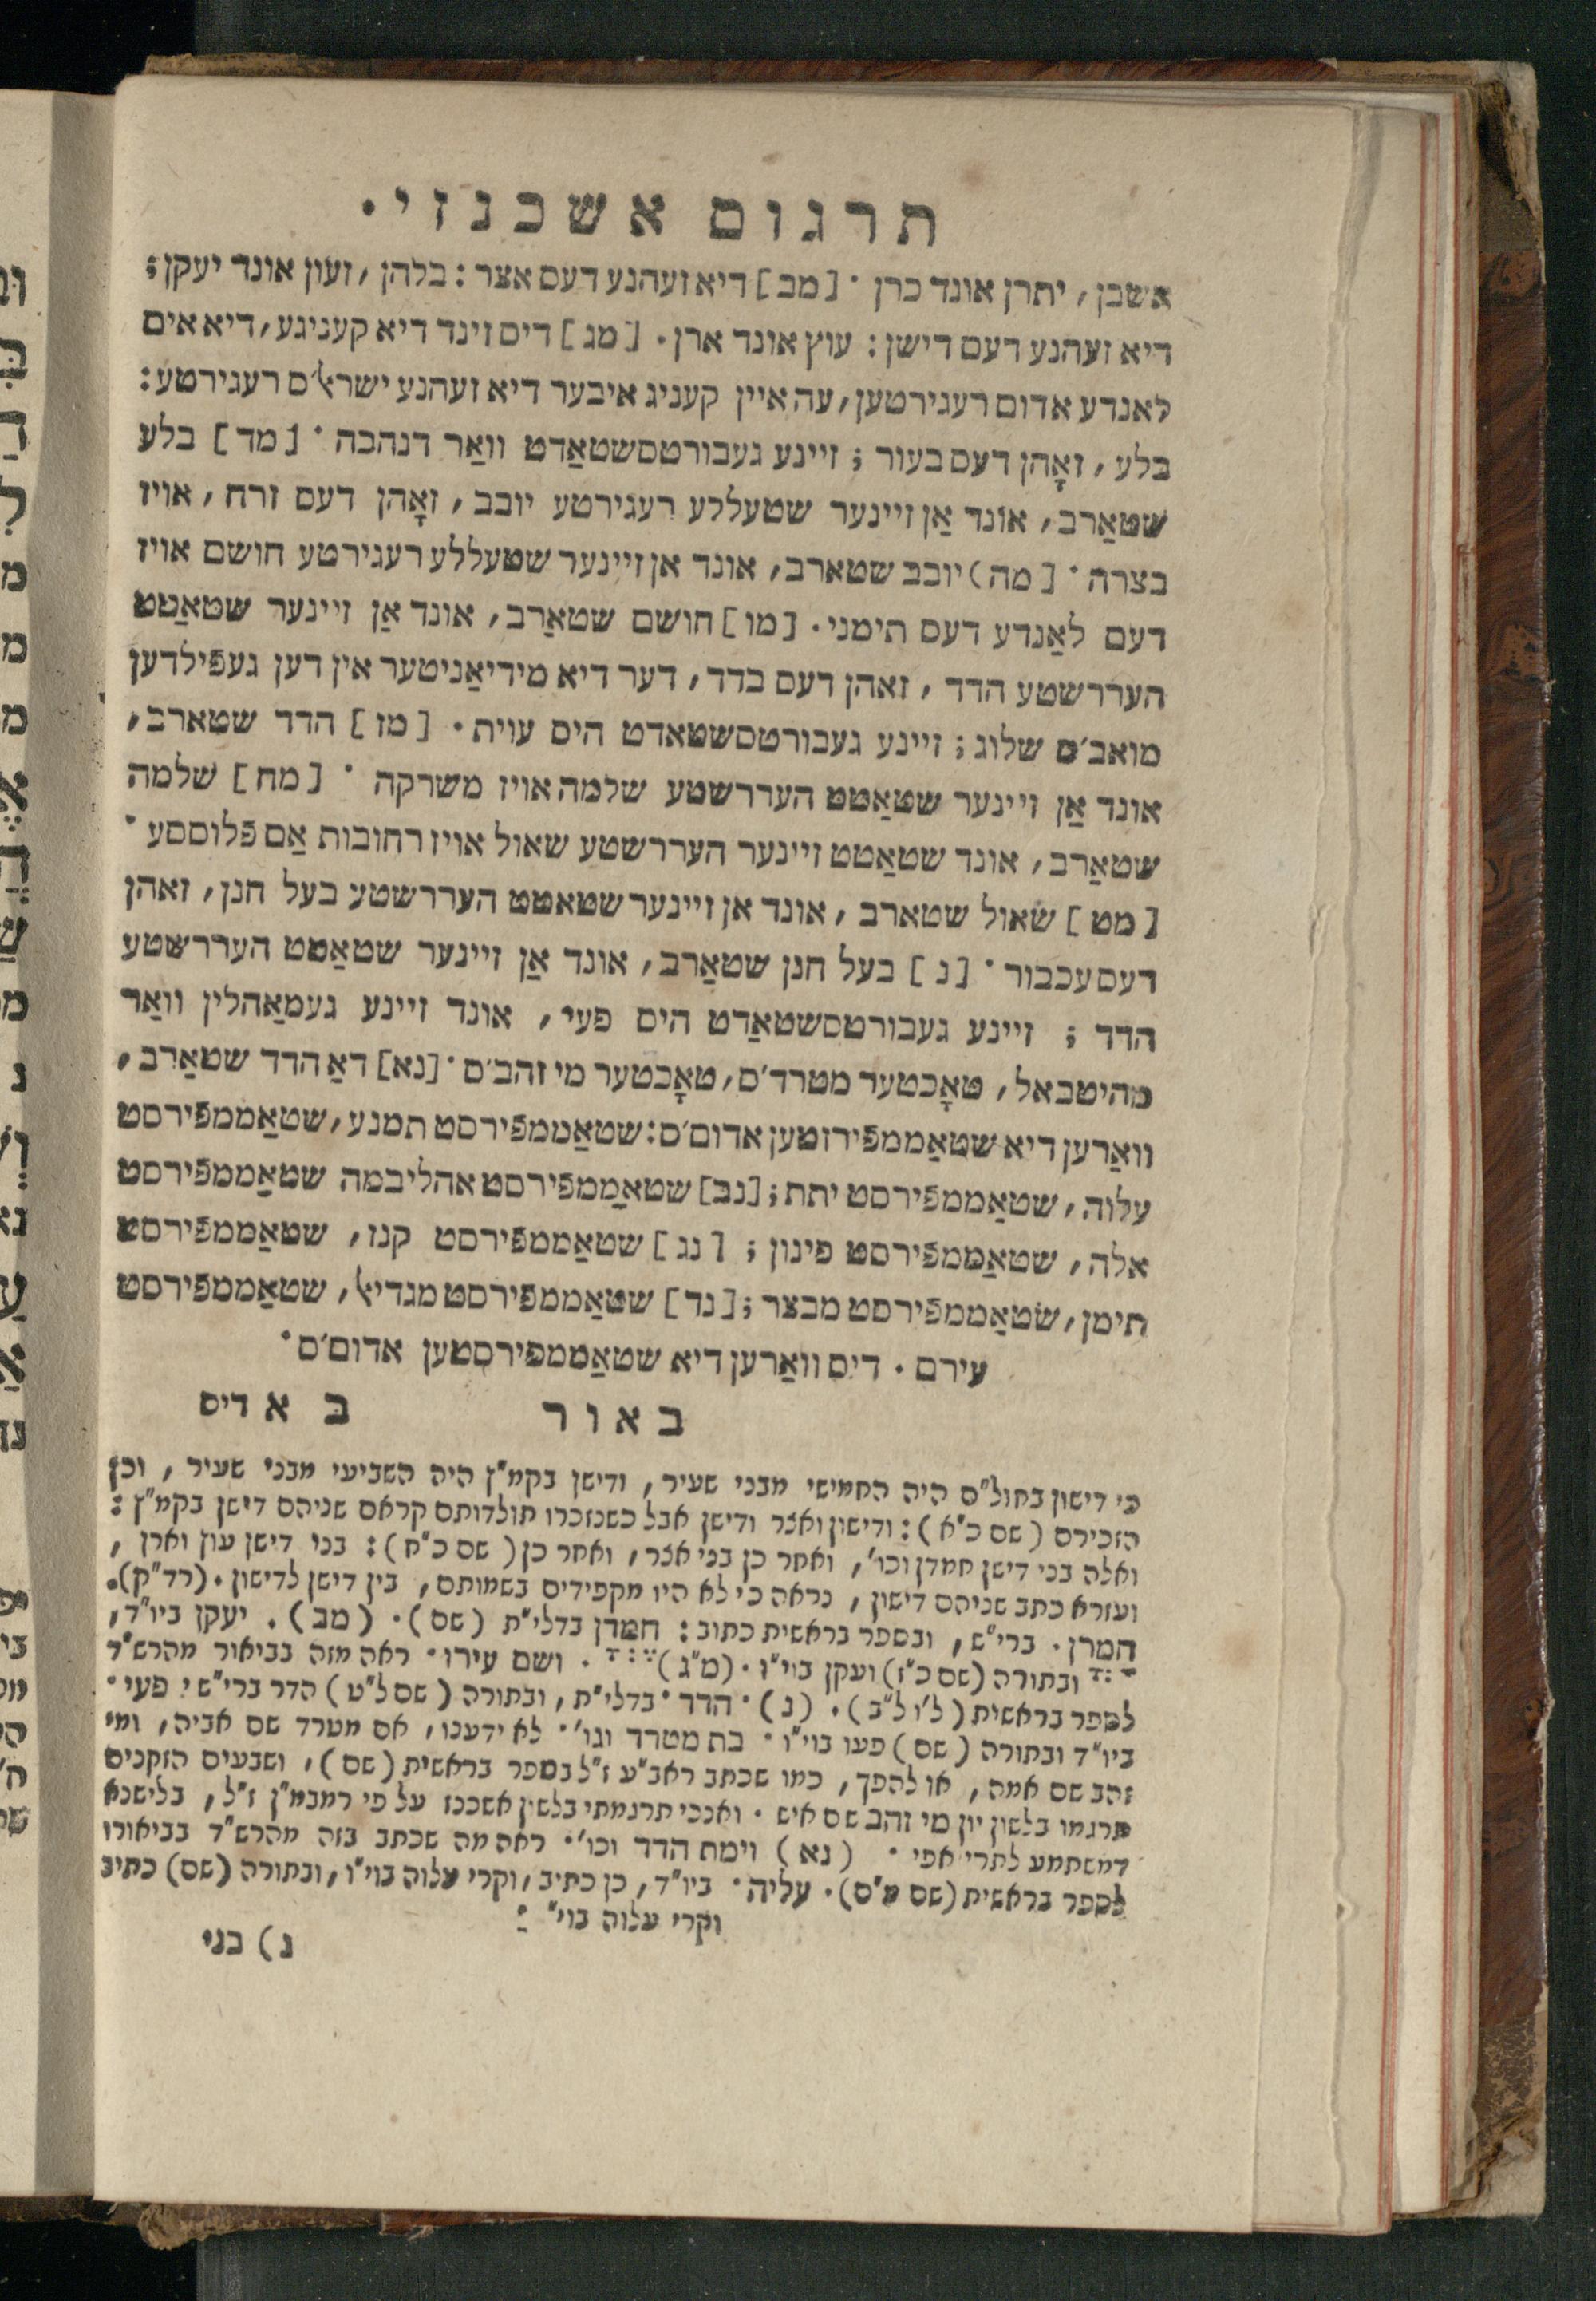 תרגום אשכנזי.
אשבן, יתרן אונד כרן ּ [מב] דיא זעהנע דעס אצר: בלהן, זעון אונד יעקן;
דיא זעהנע דעס דישן: עוץ אונד ארן. [מג] דיס זינד דיא קעניגע, דיא אים
לאנדע אדום רעגירטען, עה איין קעניג איבער דיא זעהנע ישראל'ס רעגירטע:
בלע, זאָהן דעס בעור; זיינע געבורטסשטאַדט וואַר דנהבה. [מד] בלע
שטאַרב, אונד אַן זיינער שטעללע רעגירטע יובב, זאָהן דעס זרח, אויז
בצרה. [מה) יובב שטארב, אונד אן זיינער שטעללע רעגירטע חושם אויז
דעם לאַנדע דעס תימני. [מו] חושם שטאַרב, אונד אַן זיינער שטאַטט
העררשטע הדד, זאהן דעס בדד, דער דיא מידיאַניטער אין דען געפילדען
מואב'ס שלוג; זיינע געבורטסשטאדט היס עוית. [מז] הדד שטארב,
אונד אַן זיינער שטאַטט העררשטע שלמה אויז משרקה. [מח] שלמה
שטאַרב, אונד שטאַטט זיינער העררשטע שאול אויז רחובות אַם פלוססע.
[מט] שאול שטארב, אונד אן זיינער שטאטט העררשטע בעל חנן, זאהן
דעס עכבור. [נ] בעל חנן שטאַרב, אונד אַן זיינער שטאַטט העררשטע
הדד; זיינע געבורטסשטאַדט היס פעי, אונד זיינע געמאַהלין וואַר
מהיטבאל, טאָכטער מטרד'ס, טאָכטער מי זהב'ס. [נא] דאַ הדד שטאַרב,
וואַרען דיא שטאַממפירזטען אדום'ס: שטאַממפירסט תמנע, שטאַממפירסט
עלוה, שטאַממפירסט יתת; [נב] שטאַממפירסט אהליבמה שטאַממפירסט
אלה, שטאַממפירסט פינון; [נג] שטאַממפירסט קנז, שטאַממפירסט
תימן, שטאַממפירסט מבצר; [נד] שטאַממפירסט מגדיאל, שטאַממפירסט
עירם. דיס וואַרען דיא שטאַממפירסטען אדום'ס.
באור ב א דיס
כי דישון בחול"ם היה החמישי מבני שעיר, ודישן בקמ"ץ היה השביעי מבני שעיר, וכן
הזכירם (שם כ"א): ודישון ואצר ודישן אבל כשנזכרו תולדותם קראם שניהם דישן בקמ"ץ:
ואלה בני דישן חמדן וכו', ואחר כן בני אצר, ואחר כן (שם כ"ח): בני דישן עוץ וארן,
ועזרא כתב שניהם דישון, נראה כי לא היו מקפידים בשמותם, בין דישן לדישון. (רד"ק).
חמרן. ברי"ש, ובספר בראשית כתוב: חמדן בדלי"ת (שם). (מב). יעקן ביו"ד,
ובתורה (שם כ"ז) ועקן בוי"ו. (מ"ג). ושם עירו. ראה מזה בביאור מהרש"ד
לספר בראשית (ל"ו ל"ב). (נ). הדד. בדלי"ת, ובתורה (שם ל"ט) הדר ברי"ש. פעי.
ביו"ד ובתורה (שם) פעו בוי"ו. בת מטרד וגו'. לא ידענו, אם מטרד שם אביה, ומי
זהב שם אמה, או להפך, כמו שכתב ראב"ע ז"ל בספר בראשית (שם), ושבעים הזקנים
תרגמו בלשון יון מי זהב שם איש. ואנכי תרגמתי בלשון אשכנז על פי רמבמ"ן ז"ל, בלישנא
דמשתמע לתרי אפי. (נא) וימת הדד וכו'. ראה מה שכתב בזה מהרש"ד בביאורו
לספר בראשית (שם מ"ס). עליה. ביו"ד, כן כתיב, וקרי עלוה בוי"ו, ובתורה (שם) כתיב
וקרי עלוה בוי"
נ) בני